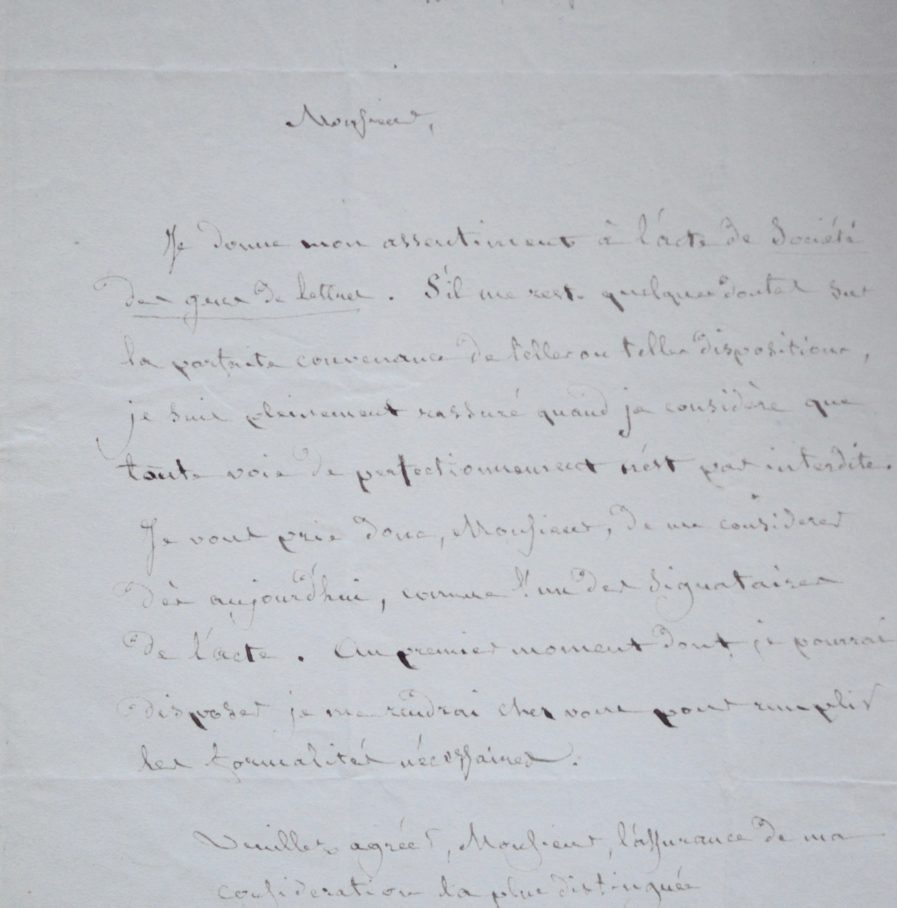 Monsieur,
Je donne mon assentiment à l'acte de Société
des gens de lettres. S'il me reste quelques doutes sur
la parfaite convenance de telles ou telles dispositions,
je suis pleinement rassuré quand je considère que
toute voie de perfectionnement n'est pas interdite.
Je vous prie donc, Monsieur, de me considerer
dès aujourd'hui, comme l'un des signataires
de l'acte. Au premier moment dont je pourrai
disposer je me rendrai chez vous pour remplir
les formalités nécessaires.
Veuillez agréer, Monsieur, l'assurance de ma
consideration la plus distinguée